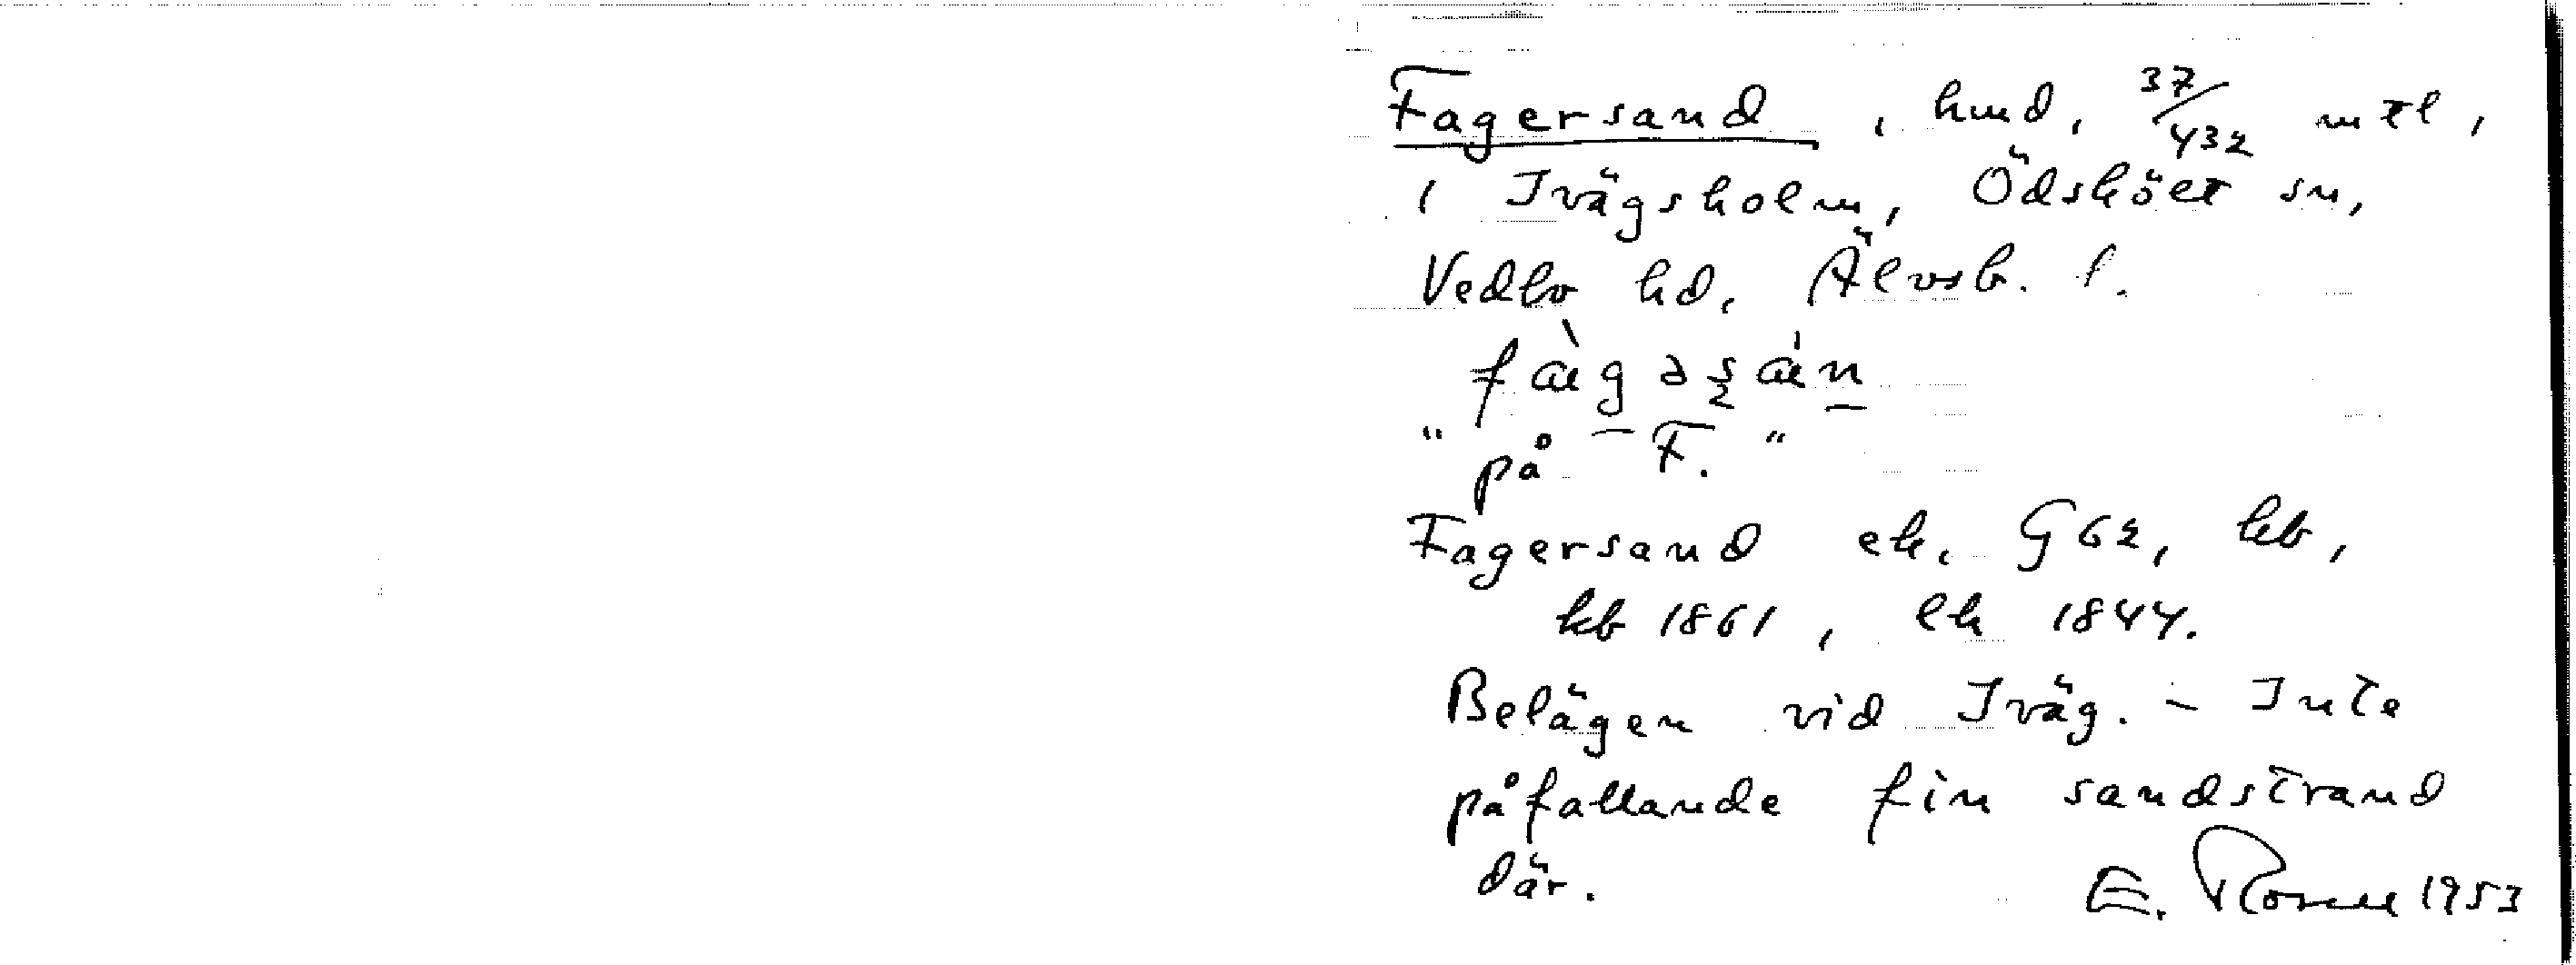 Fagersand, hmd, 37/432 mtl,
i Ivägsholm, Ödskölt sn,
Vedbo hd, Älvsb. l.
"på F."
Fagersand ek. G 62, hb,
kb 1861, lk 1844.
Belägen vid Iväg. - Inte
påfallande fin sandstrand
där. E. Rosell 1953